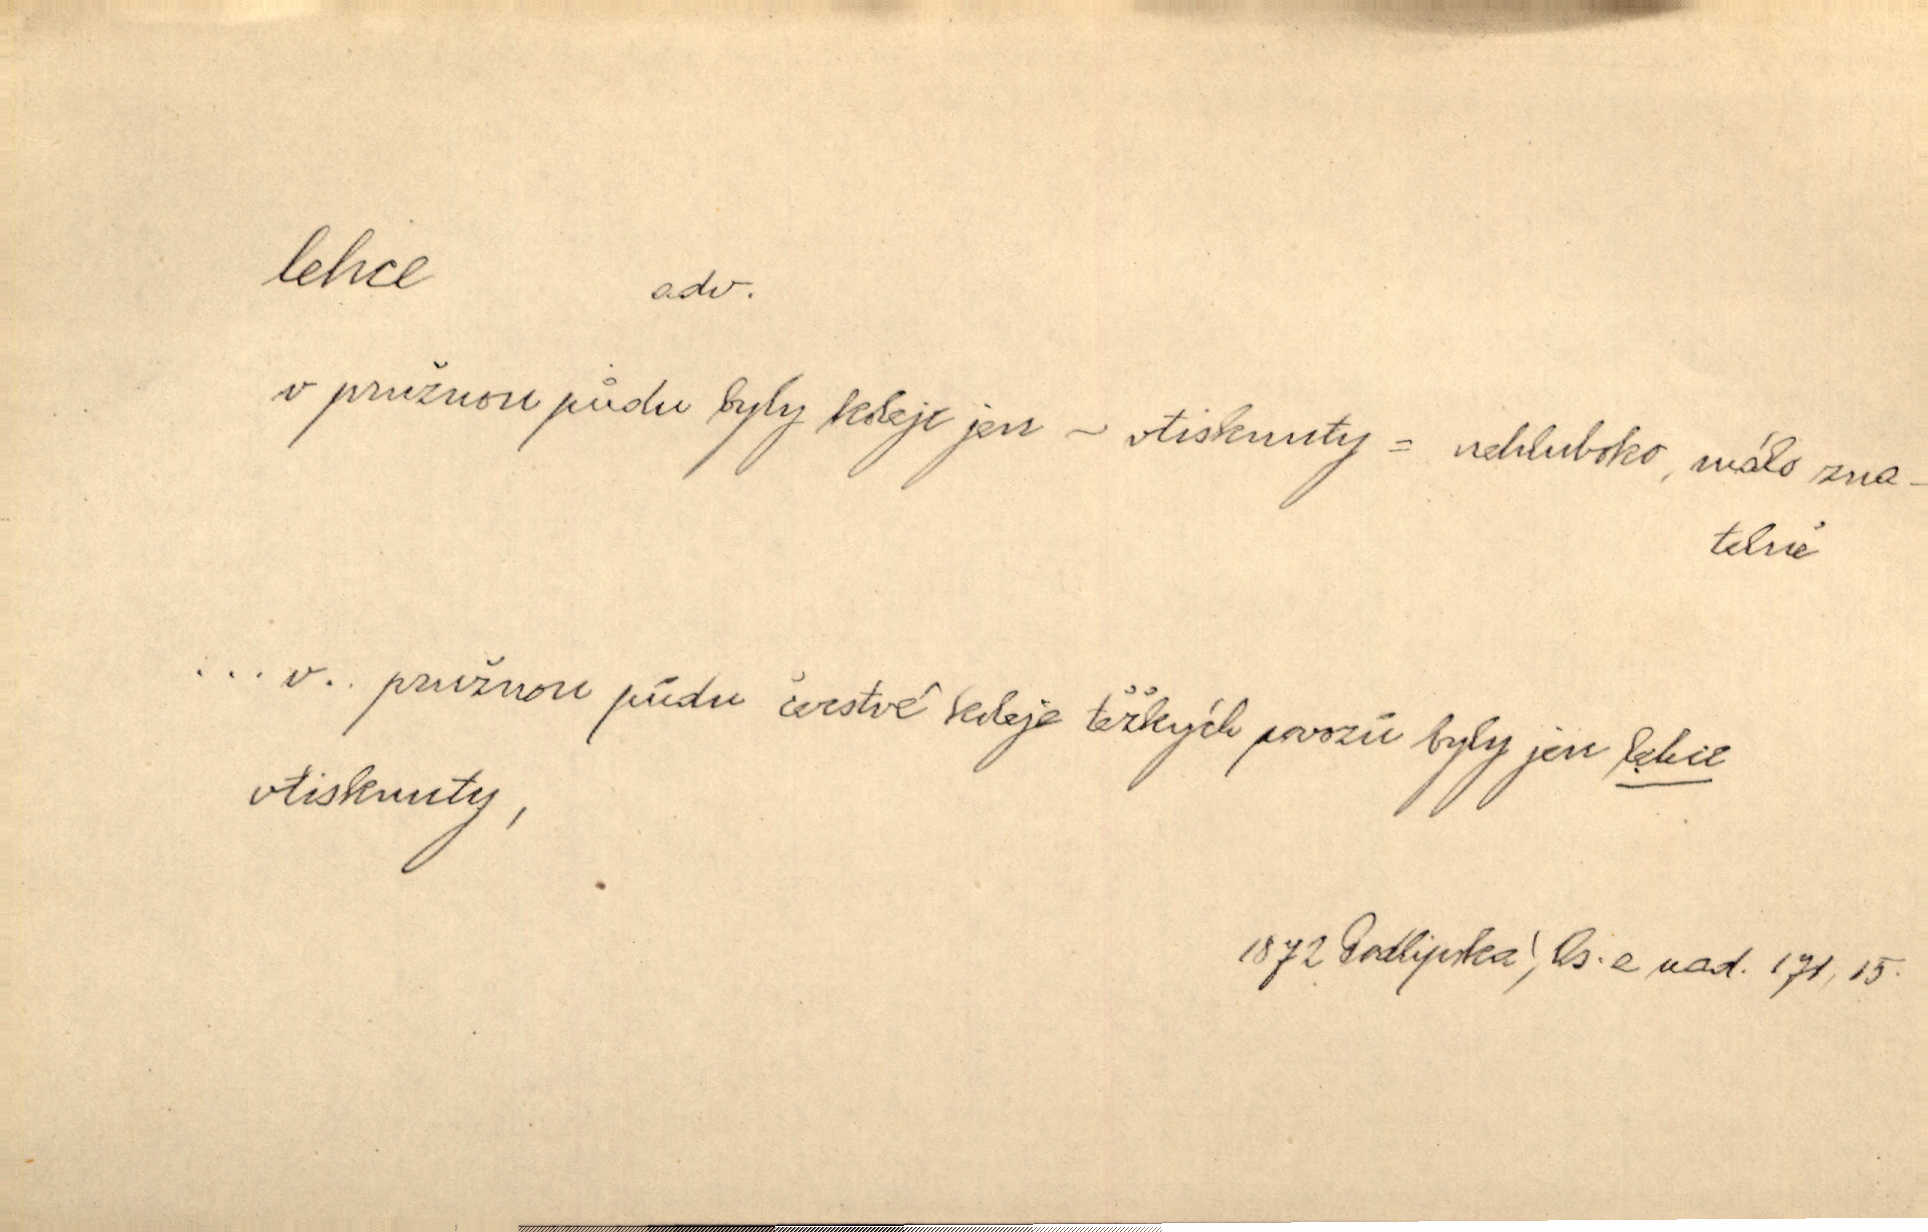 lehce adv.
v pružnou půdu byly koleje jen ~ vtisknuty = nehluboko, málo zna-
telně
... v.. pružnou půdu čerstvé koleje těžkých povozů byly jen lehce
vtisknuty,
1872 Podlipská, Os. a nad. 171, 15.